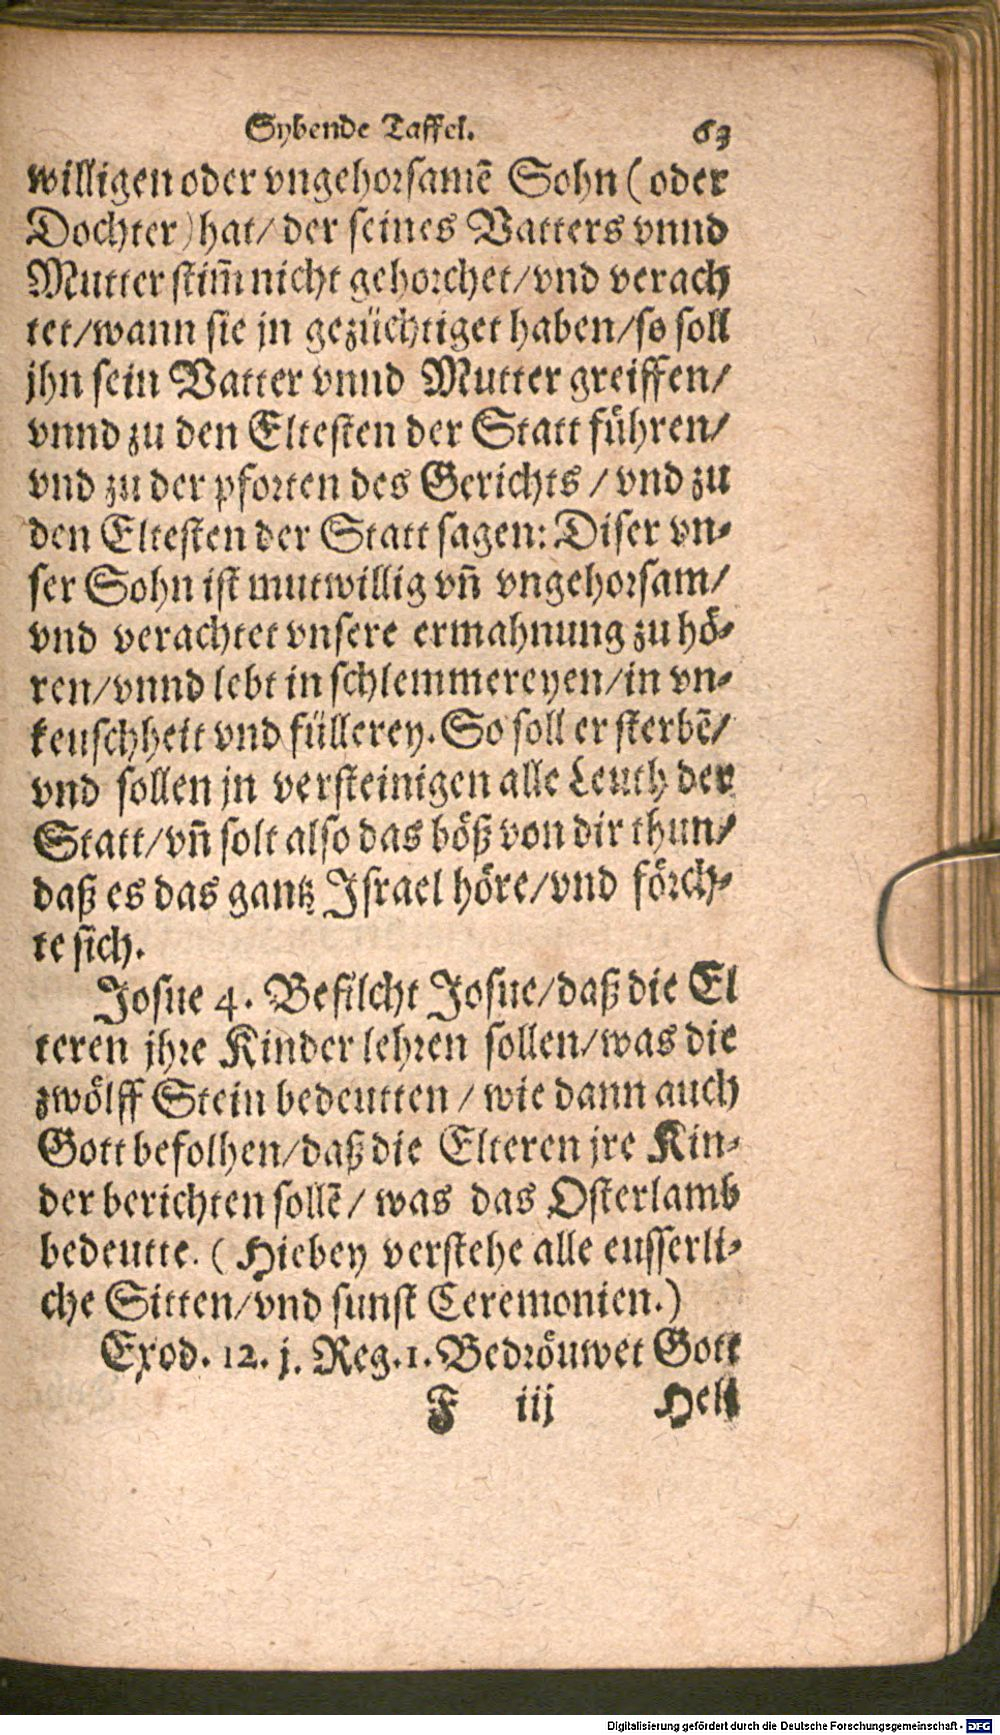 Sybende Taffel. 63
willigen oder vngehorsamẽ Sohn (oder
Dochter) hat/ der seines Vatters vnnd
Mutter stim̃ nicht gehorchet/ vnd verach
tet/ wann sie jn gezüchtiget haben/ so soll
jhn sein Vatter vnnd Mutter greiffen/
vnnd zu den Eltesten der Statt führen/
vnd zu der pforten des Gerichts / vnd zu
den Eltesten der Statt sagen: Diser vn-
ser Sohn ist mutwillig vñ vngehorsam/
vnd verachtet vnsere ermahnung zu hö-
ren/ vnnd lebt in schlemmereyen/ in vn-
keuschheit vnd füllerey. So soll er sterbẽ/
vnd sollen jn versteinigen alle Leuth der
Statt/ vñ solt also das böß von dir thun/
daß es das gantz Israel höre/ vnd förch-
te sich.
Josue 4. Befilcht Josue/ daß die El
teren jhre Kinder lehren sollen/ was die
zwölff Stein bedeutten / wie dann auch
Gott befolhen/ daß die Elteren jre Kin-
der berichten sollẽ/ was das Osterlamb
bedeutte. ( Hiebey verstehe alle eusserli-
che Sitten/ vnd sunst Ceremonien.)
Exod. 12. j. Reg. 1. Bedröuwet Gott
F iij Heli
Digitalisierung gefördert durch die Deutsche Forschungsgemeinschaft - DFG